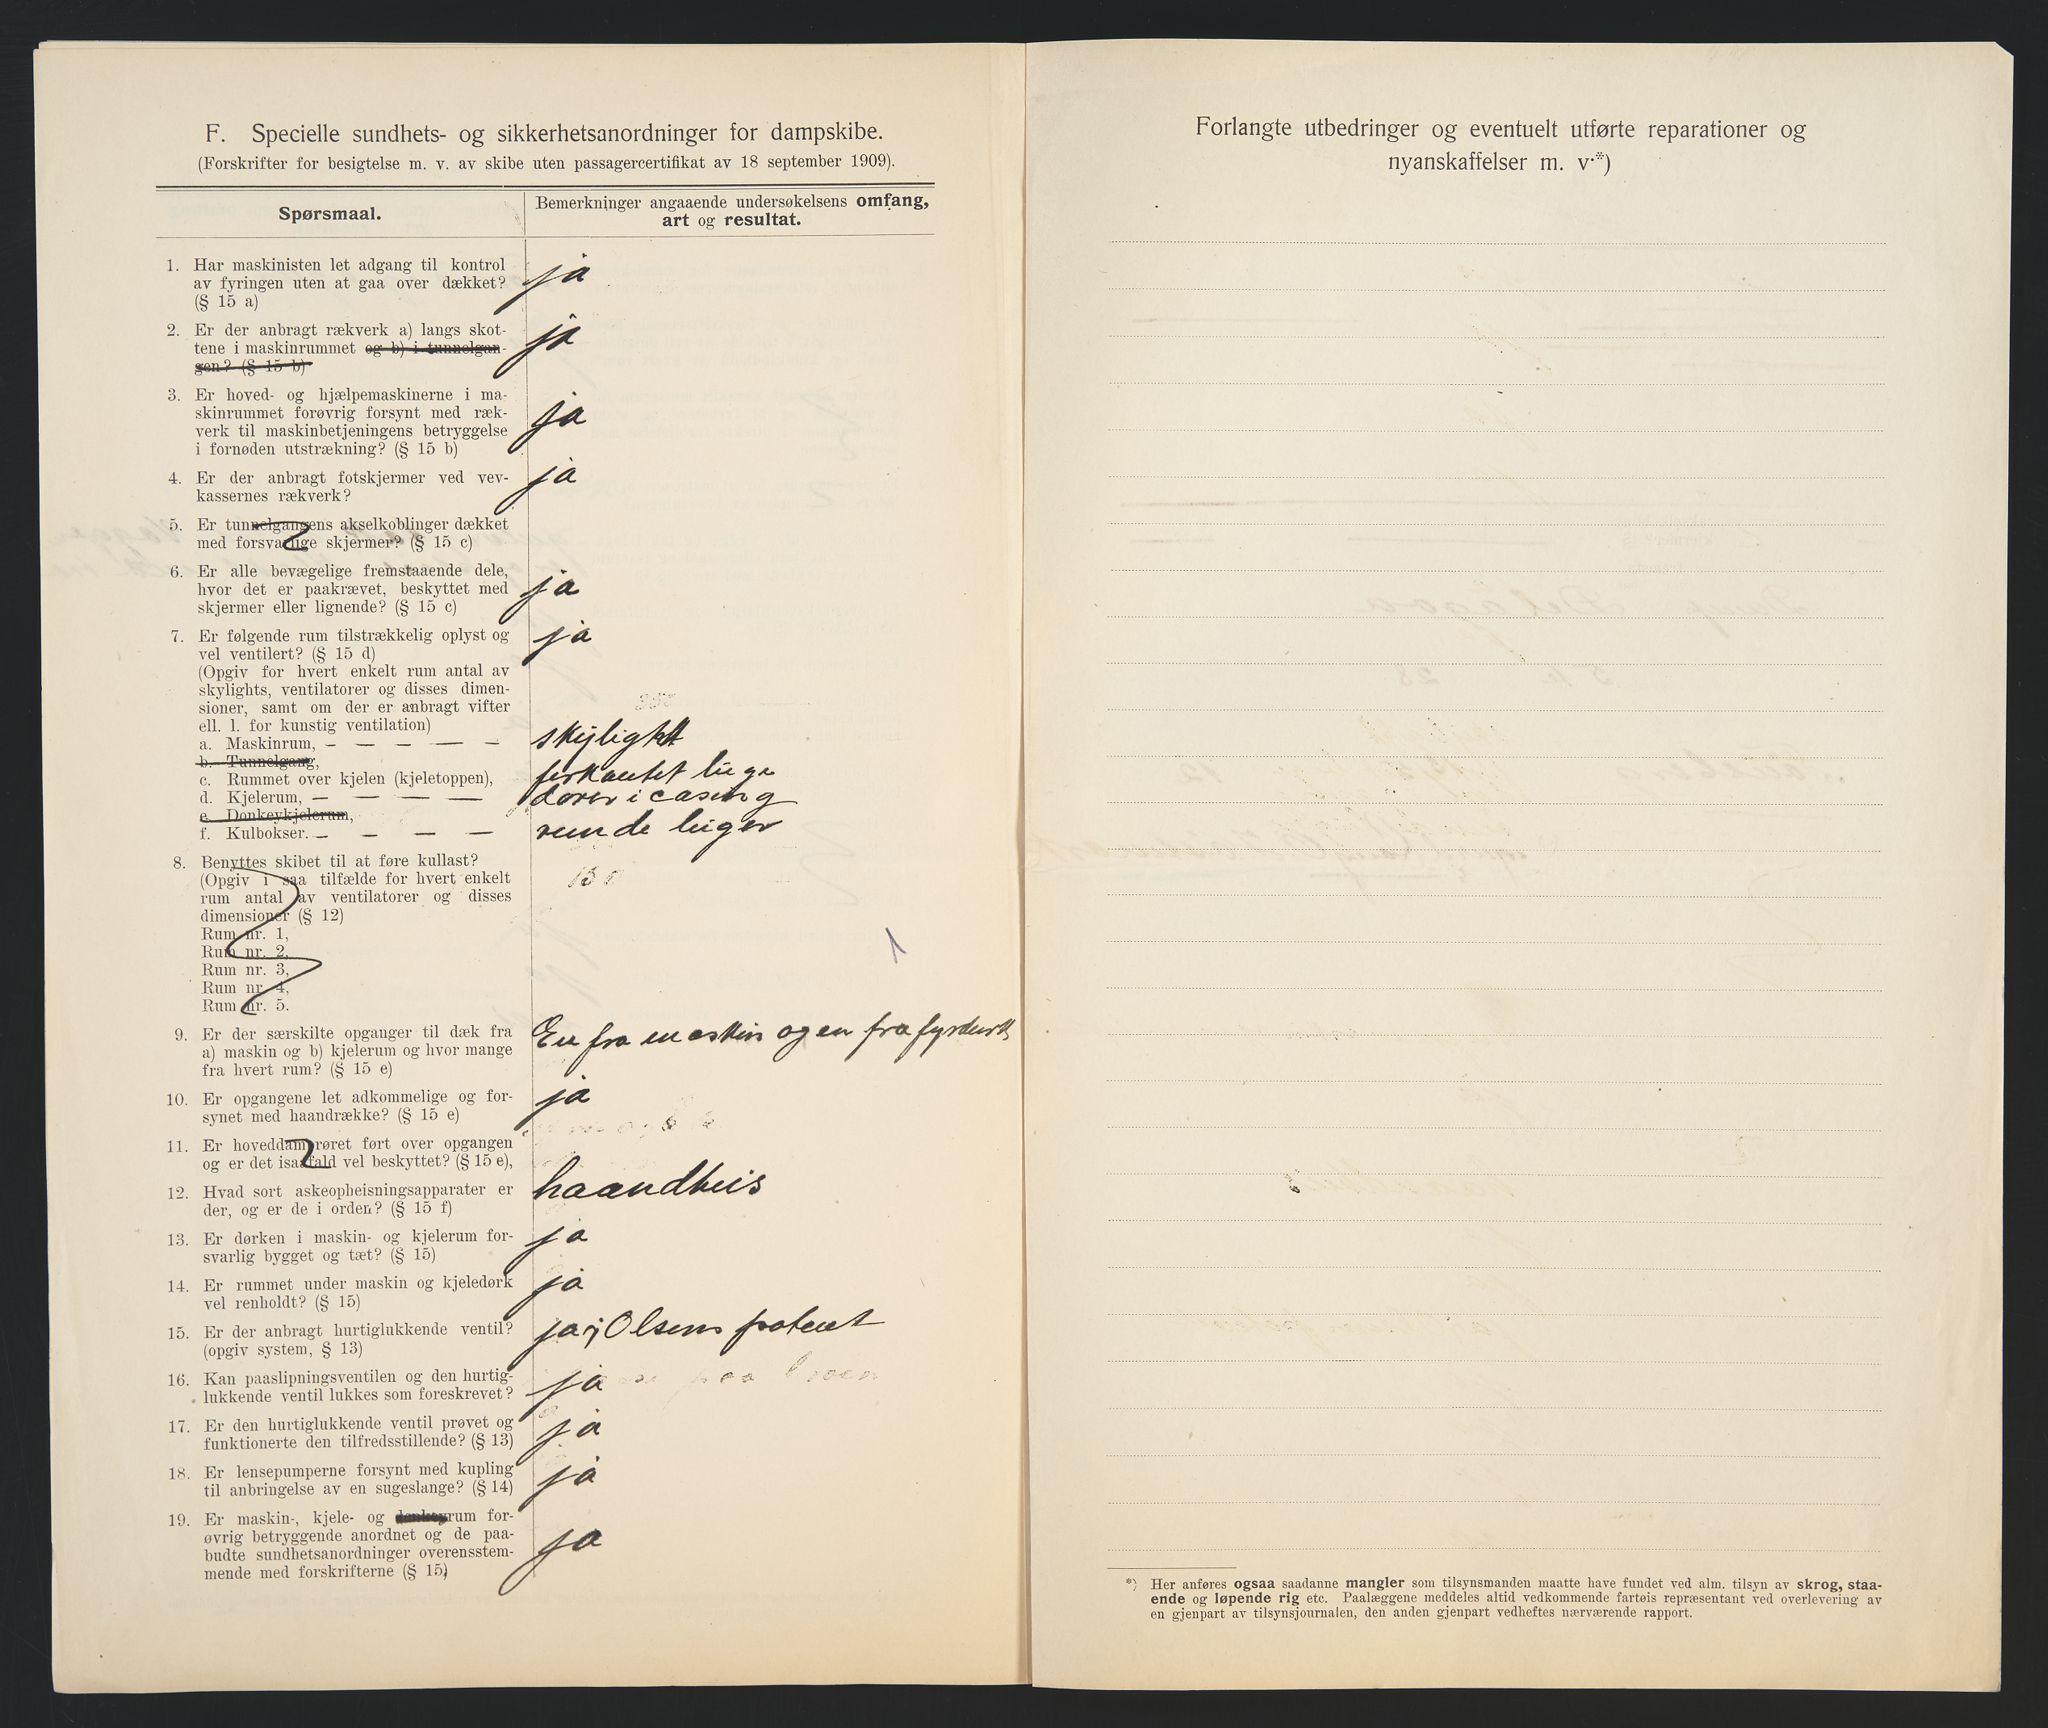 F. Specielle sundhets- og sikkerhetsanordninger for dampskibe.
(Forskrifter for besigtelse m. v. av skibe uten passagercertifikat av 18 september 1909).
Spørsmaal.
Bemerkninger angaaende undersøkelsens omfang,
art og resultat.
1. Har maskinisten let adgang til kontrol
av fyringen uten at gaa over dækket?
(§ 15 a)
ja
2. Er der anbragt rækverk a) langs skot-
tene i maskinrummet og b) i tunnelgan-
gen? (§ 15 b)
ja
3. Er hoved- og hjælpemaskinerne i ma-
skinrummet forøvrig forsynt med ræk-
verk til maskinbetjeningens betryggelse
i fornøden utstrækning? (§ 15 b)
ja
4. Er der anbragt fotskjermer ved vev-
kassernes rækverk?
ja
5. Er tunnelgangens akselkoblinger dækket
med forsvarlige skjermer? (§ 15 c)
6. Er alle bevægelige fremstaaende dele,
hvor det er paakrævet, beskyttet med
skjermer eller lignende? (§ 15 c)
ja
7. Er følgende rum tilstrækkelig oplyst og
vel ventilert? (§ 15 d)
ja
(Opgiv for hvert enkelt rum antal av
skylights, ventilatorer og disses dimen-
sioner, samt om der er anbragt vifter
ell. l. for kunstig ventilation)
a. Maskinrum, — — — — — skylight
b. Tunnelgang,
c. Rummet over kjelen (kjeletoppen), firkantet luge
d. Kjelerum, — — — — — dører i casing
e. Donkeykjelerum,
f. Kulbokser. — — — — runde luger
8. Benyttes skibet til at føre kullast?
(Opgiv i saa tilfælde for hvert enkelt
rum antal av ventilatorer og disses
dimensioner (§ 12)
Rum nr. 1,
Rum nr. 2,
Rum nr. 3,
Rum nr. 4,
Rum nr. 5.
9. Er der særskilte opganger til dæk fra
a) maskin og b) kjelerum og hvor mange
fra hvert rum? (§ 15 e)
En fra maskin og en fra fyrdørk
10. Er opgangene let adkommelige og for-
synet med haandrække? (§ 15 e)
ja
11. Er hoveddamprøret ført over opgangen
og er det isaafald vel beskyttet? (§ 15 e),
12. Hvad sort askeopheisningsapparater er
der, og er de i orden? (§ 15 f)
haandheis
13. Er dørken i maskin- og kjelerum for-
svarlig bygget og tæt? (§ 15)
ja
14. Er rummet under maskin og kjeledørk
vel renholdt? (§ 15)
ja
15. Er der anbragt hurtiglukkende ventil?
(opgiv system, § 13)
ja; Olsens patent
16. Kan paaslipningsventilen og den hurtig-
lukkende ventil lukkes som foreskrevet?
ja
17. Er den hurtiglukkende ventil prøvet og
funktionerte den tilfredsstillende? (§ 13)
ja
18. Er lensepumperne forsynt med kupling
til anbringelse av en sugeslange? (§ 14)
ja
19. Er maskin-, kjele- og donkeyrum for-
øvrig betryggende anordnet og de paa-
budte sundhetsanordninger overensstem-
mende med forskrifterne (§ 15)
ja
Forlangte utbedringer og eventuelt utførte reparationer og
nyanskaffelser m. v.*)
*) Her anføres ogsaa saadanne mangler som tilsynsmanden maatte have fundet ved alm. tilsyn av skrog, staa-
ende og løpende rig etc. Paalæggene meddeles altid vedkommende fartøis repræsentant ved overlevering av
en gjenpart av tilsynsjournalen, den anden gjenpart vedheftes nærværende rapport.